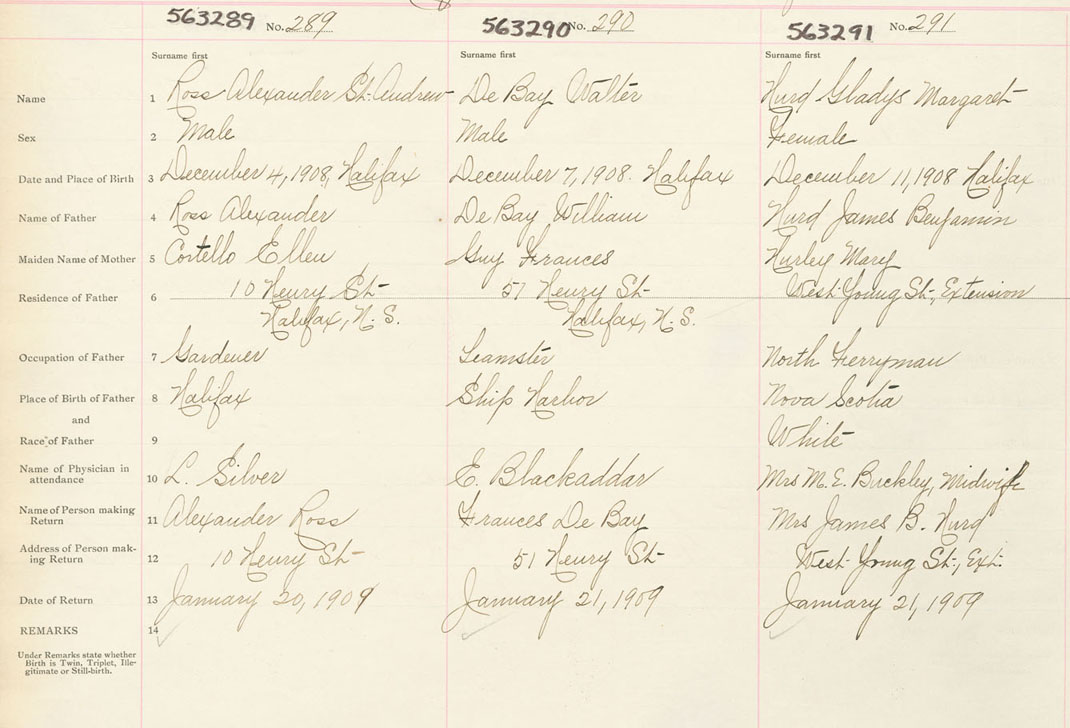 563289 No. 289 563290 No. 290 563291 No. 291
Surname first Surname first Surname first
Name 1 Ross Alexander St. Andrew De Bay Walter Hurd Gladys Margaret
Sex 2 Male Male Female
Date and Place of Birth 3 December 4, 1908, Halifax December 7, 1908. Halifax December 11, 1908 Halifax
Name of Father 4 Ross Alexander De Bay William Hurd James Benjamin
Maiden Name of Mother 5 Costello Ellen Guy Frances Hurley Mary
Residence of Father 6 10 Henry St- 51 Henry St- West Young St., Extension
Halifax, N. S. Halifax, N. S.
Occupation of Father 7 Gardener Teamster North Ferryman
Place of Birth of Father 8 Halifax Ship Harbor Nova Scotia
and
Race of Father 9 White
Name of Physician in
attendance 10 L. Silver E. Blackaddar Mrs M. E. Buckley, Midwife
Name of Person making
Return 11 Alexander Ross Frances De Bay Mrs James B. Hurd
Address of Person mak-
ing Return 12 10 Henry St- 51 Henry St- West Young St., Ext.
Date of Return 13 January 20, 1909 January 21, 1909 January 21, 1909
REMARKS 14
Under Remarks state whether
Birth is Twin, Triplet, Ille-
gitimate or Still-birth.